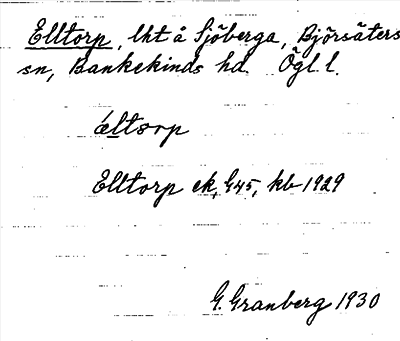 Elltorp, lht å Sjöberga, Björsäters
sn, Bankekinds hd. Ögl. l.
éltorp
Elltorp ek, G45, kb 1929
G. Granberg 1930